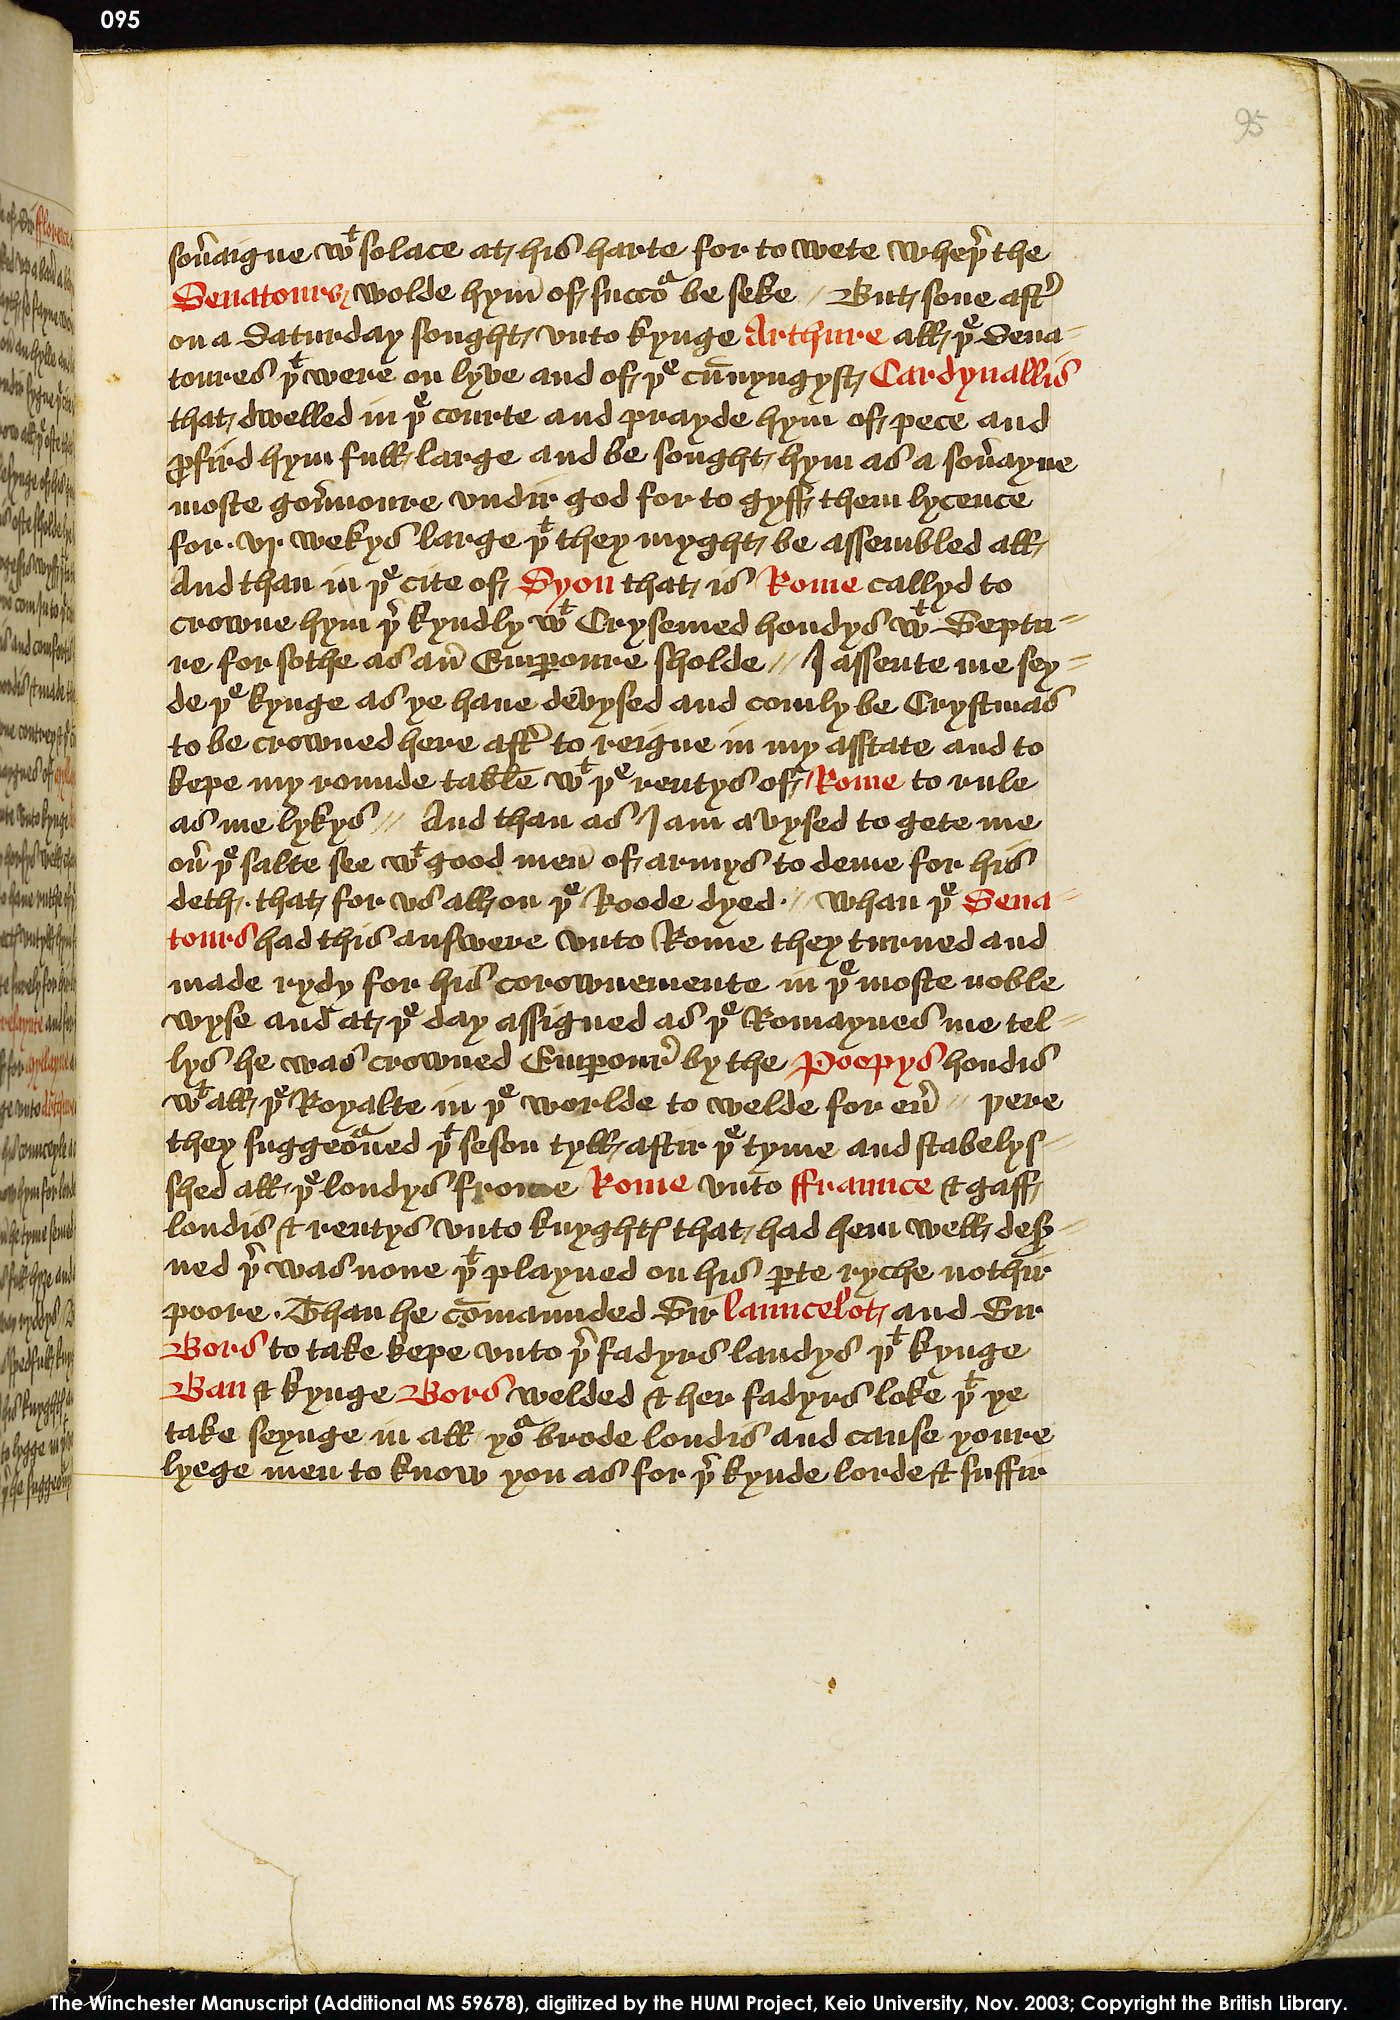 095
95
sou̅aigne wᵗ solace at his harte for to wete wheþ̉ the
Senatours wolde hym of succoᵃ be seke // But sone aft̉
on a Saturday sought vnto kynge Arthure all þᵉ Sena-
toures þᵗ were on lyve and of þᵉ cu̅nyngyst Cardynallis
that dwelled in þᵉ courte and prayde hym of pece and
ꝓfird hym full large and be sought hym as a sou̅ayne
moste gou̅noure vndir god for to gyff them lycence
for .vj. wekys large þᵗ they myght be assembled all
And than in þᵉ cite of Syon that is Rome callyd to
crowne hym þ̉ kyndly wᵗ Crysemed hondys wᵗ Septu=
re for sothe as an̅ Emꝑoure sholde // I assente me sey=
de þᵉ kynge as ye haue devysed and comly be Crystmas
to be crowned here aft̉ to reigne in my asstate and to
kepe my rounde table wᵗ þᵉ rentys of Rome to rule
as me lykys // And than as I am avysed to gete me
ou̅ þᵉ salte see wᵗ good men of armys to deme for his
deth . that for vs all on þᵉ Roode dyed . // whan þᵉ Sena-
tours had this answere vnto Rome they turned and
made rydy for his corownemente in þᵉ moste noble
wyse and at þᵉ day assigned as þᵉ Romaynes me tel=
lys he was crowned Emꝑour̉ by the Poepys hondis
wᵗ all þᵉ Royalte in þᵉ worlde to welde for eu̅ // þere
they suggeoᵃned þᵗ seson tyll aftir þᵉ tyme and stabelys=
shed all þᵉ londys frome Rome vnto ffraunce & gaff
londis & rentys vnto knyghtꝭ that had hem well des̉=
ued þ̉ was none þᵗ playned on his ꝑte ryche nothir
poore . Than he co̅maunded Sir launcelot and Sir
Bors to take kepe vnto þ̉ fadyrs landys þᵗ kynge
Ban & kynge Bors welded & her fadyrs loke þᵗ ye
take seynge in all yoᵃ brode londis and cause youre
lyege men to know you as for þ̉ kynde lorde & suffir
The Winchester Manuscript (Additional MS 59678), digitized by the HUMI Project, Keio University, Nov. 2003; Copyright the British Library.